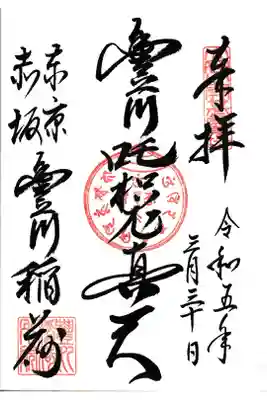 奉拝
令和五年
三月三十日
豊川吒枳尼真天
東京
赤坂豊川稲荷